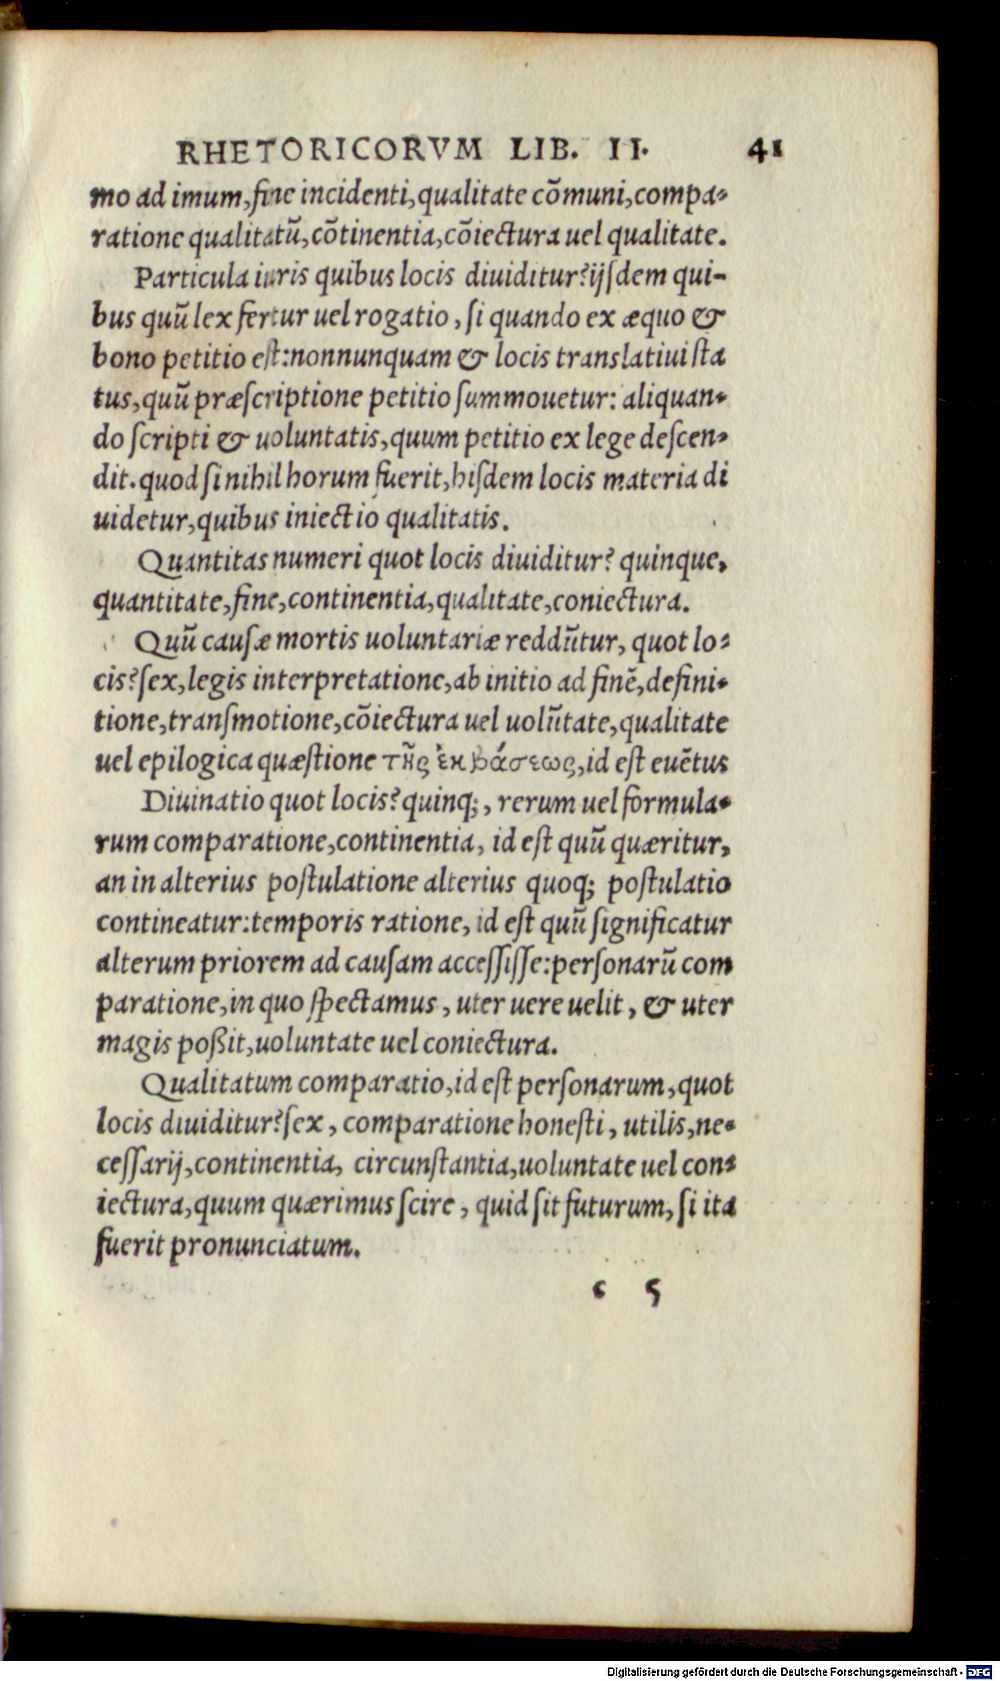 RHETORICORVM LIB. II. 41
mo ad imum, fine incidenti, qualitate cõmuni, compa-
ratione qualitatũ, cõtinentia, cõiectura uel qualitate.
Particula iuris quibus locis diuiditur? ijsdem qui-
bus quũ lex fertur uel rogatio, si quando ex æquo &
bono petitio est: nonnunquam & locis translatiui sta
tus, quũ præscriptione petitio summouetur: aliquan-
do scripti & uoluntatis, quum petitio ex lege descen-
dit. quod si nihil horum fuerit, hisdem locis materia di
uidetur, quibus iniectio qualitatis.
Quantitas numeri quot locis diuiditur? quinque,
quantitate, fine, continentia, qualitate, coniectura.
Quũ causæ mortis uoluntariæ reddũtur, quot lo-
cis? sex, legis interpretatione, ab initio ad finẽ, defini-
tione, transmotione, cõiectura uel uolũtate, qualitate
uel epilogica quæstione τῆς ἐκβάσεως, id est euẽtus
Diuinatio quot locis? quinq;, rerum uel formula-
rum comparatione, continentia, id est quũ quæritur,
an in alterius postulatione alterius quoq; postulatio
contineatur: temporis ratione, id est quũ significatur
alterum priorem ad causam accessisse: personarũ com
paratione, in quo spectamus, uter uere uelit, & uter
magis poßit, uoluntate uel coniectura.
Qualitatum comparatio, id est personarum, quot
locis diuiditur? sex, comparatione honesti, utilis, ne-
cessarij, continentia, circunstantia, uoluntate uel con-
iectura, quum quærimus scire, quid sit futurum, si ita
fuerit pronunciatum.
c 5
Digitalisierung gefördert durch die Deutsche Forschungsgemeinschaft - DFG